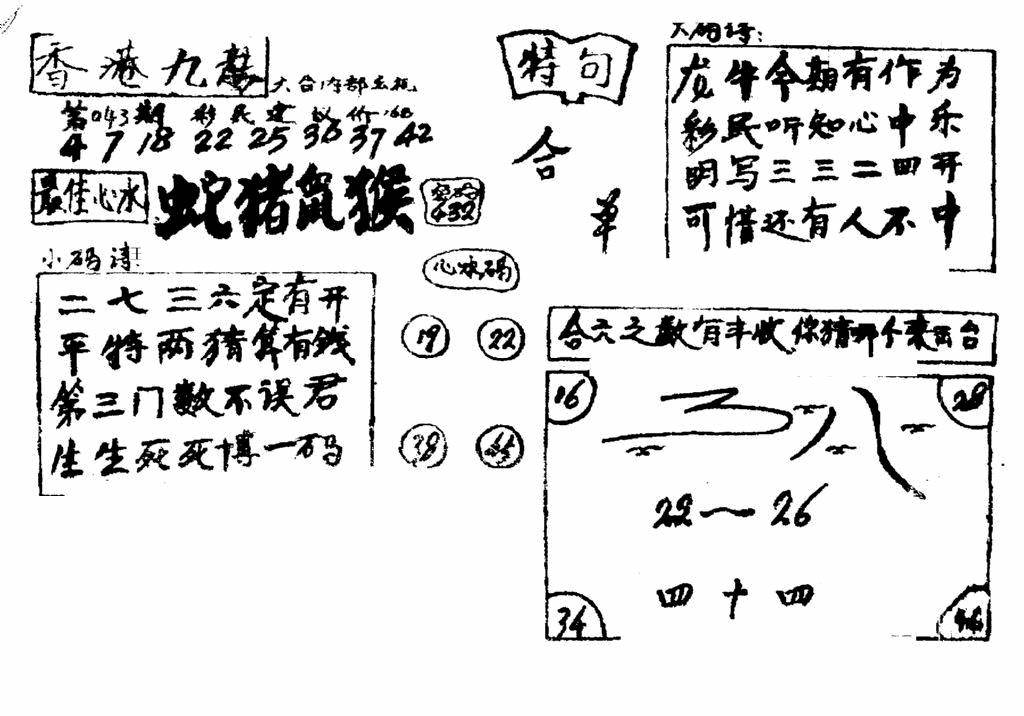 香港九龙
大合内部出版
第043期 彩民建议价:68
4 7 18 22 25 36 37 42
最佳心水 蛇猪鼠猴
432
小码诗:
二七三六定有开
平特两猜算有钱
第三门数不误君
生生死死博一码
心水码
19 22
38
特句
合
单
大码诗:
虎牛今期有作为
彩民听知心中乐
明写三三二四开
可惜还有人不中
合六之数有丰收 你猜那个来出台
16 28
22—26
四十四
34 46